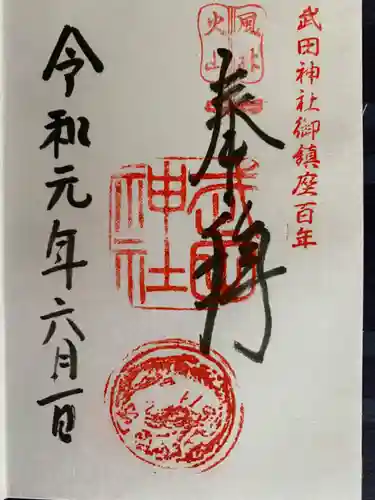 武田神社御鎮座百年
風林
火山
奉拝
武田
神社
令和元年六月一日